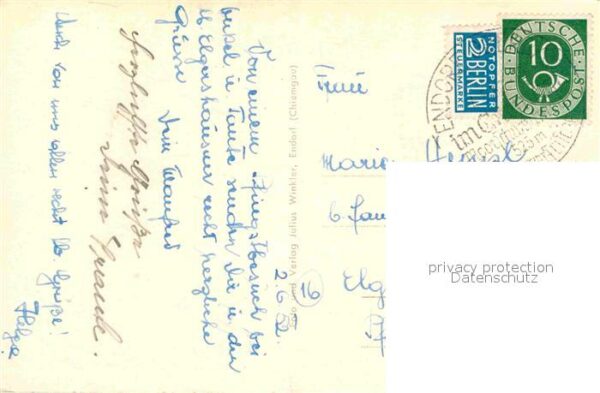 2.6.52
Von einem Pfingstbesuch bei
Onkel u Tante senden Dir u den
lb Elgershäuser recht herzliche
Grüße Dein Manfred
Herzliche Grüße
Deine
Auch von uns allen recht lb Grüße!
Helga
Foto und Verlag Julius Winkler, Endorf (Chiemgau)
NOTOPFER
2 BERLIN
STEUERMARKE
DEUTSCHE
10
BUNDESPOST
ENDORF
im
525 m
Frau
Maria
b.
(16) Elg
privacy protection
Datenschutz